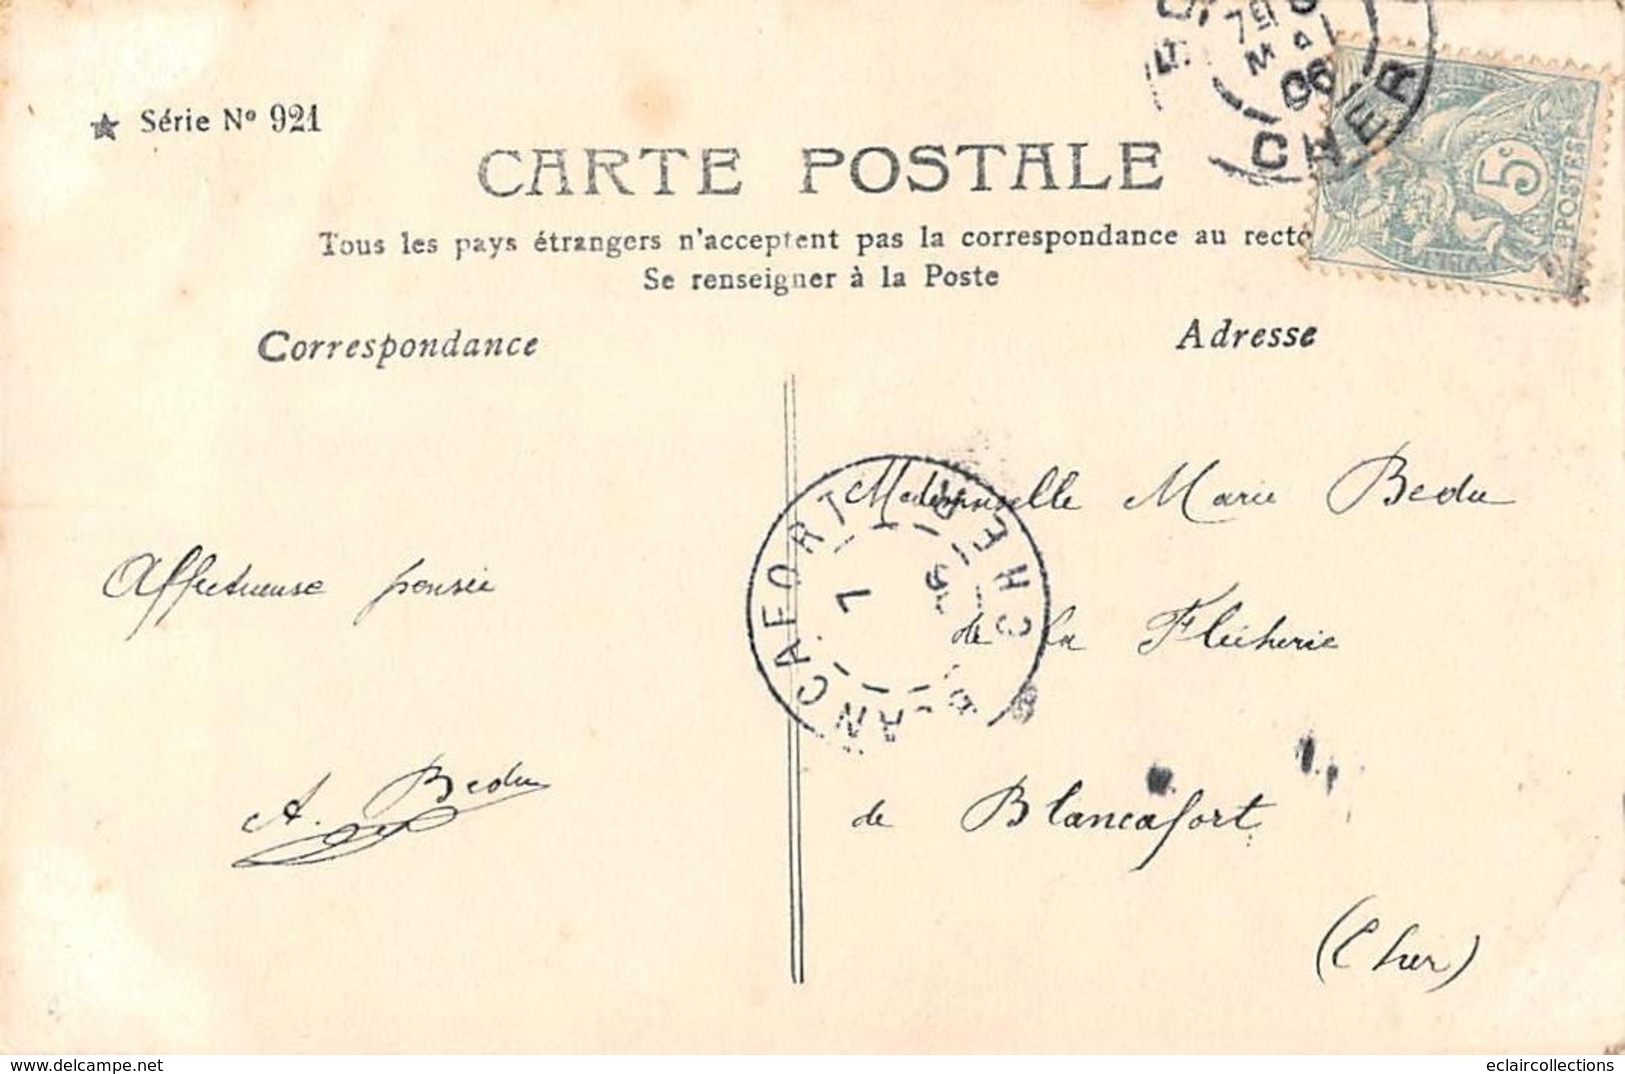 ★ Série Nº 921
CARTE POSTALE
Tous les pays étrangers n'acceptent pas la correspondance au recto
Se renseigner à la Poste
Correspondance
Adresse
CHER
06
5c
POSTES
BLANCAFORT
CHER
7
06
Affectueuse pensée
A. Bedu
Mademoiselle Marie Bedu
de la Flècherie
de Blancafort
(Cher)
www.delcampe.net
eclaircollections